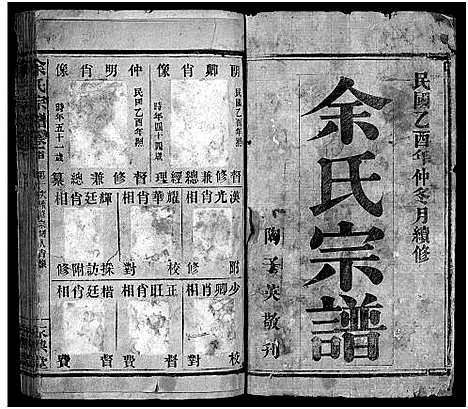 民國乙酉年仲冬月續修
余氏宗譜
陶子英敬刊
朗卿肖像
民國乙酉年照
時年四十四歲
督修兼總經理
仲明肖像
民國乙酉年照
時年五十一歲
督修兼總纂
漢光肖相
耀華肖相
校對
輝廷肖相
採訪附修
少卿肖相
校對
正旺肖相
督費
楷廷肖相
督費
余氏宗譜